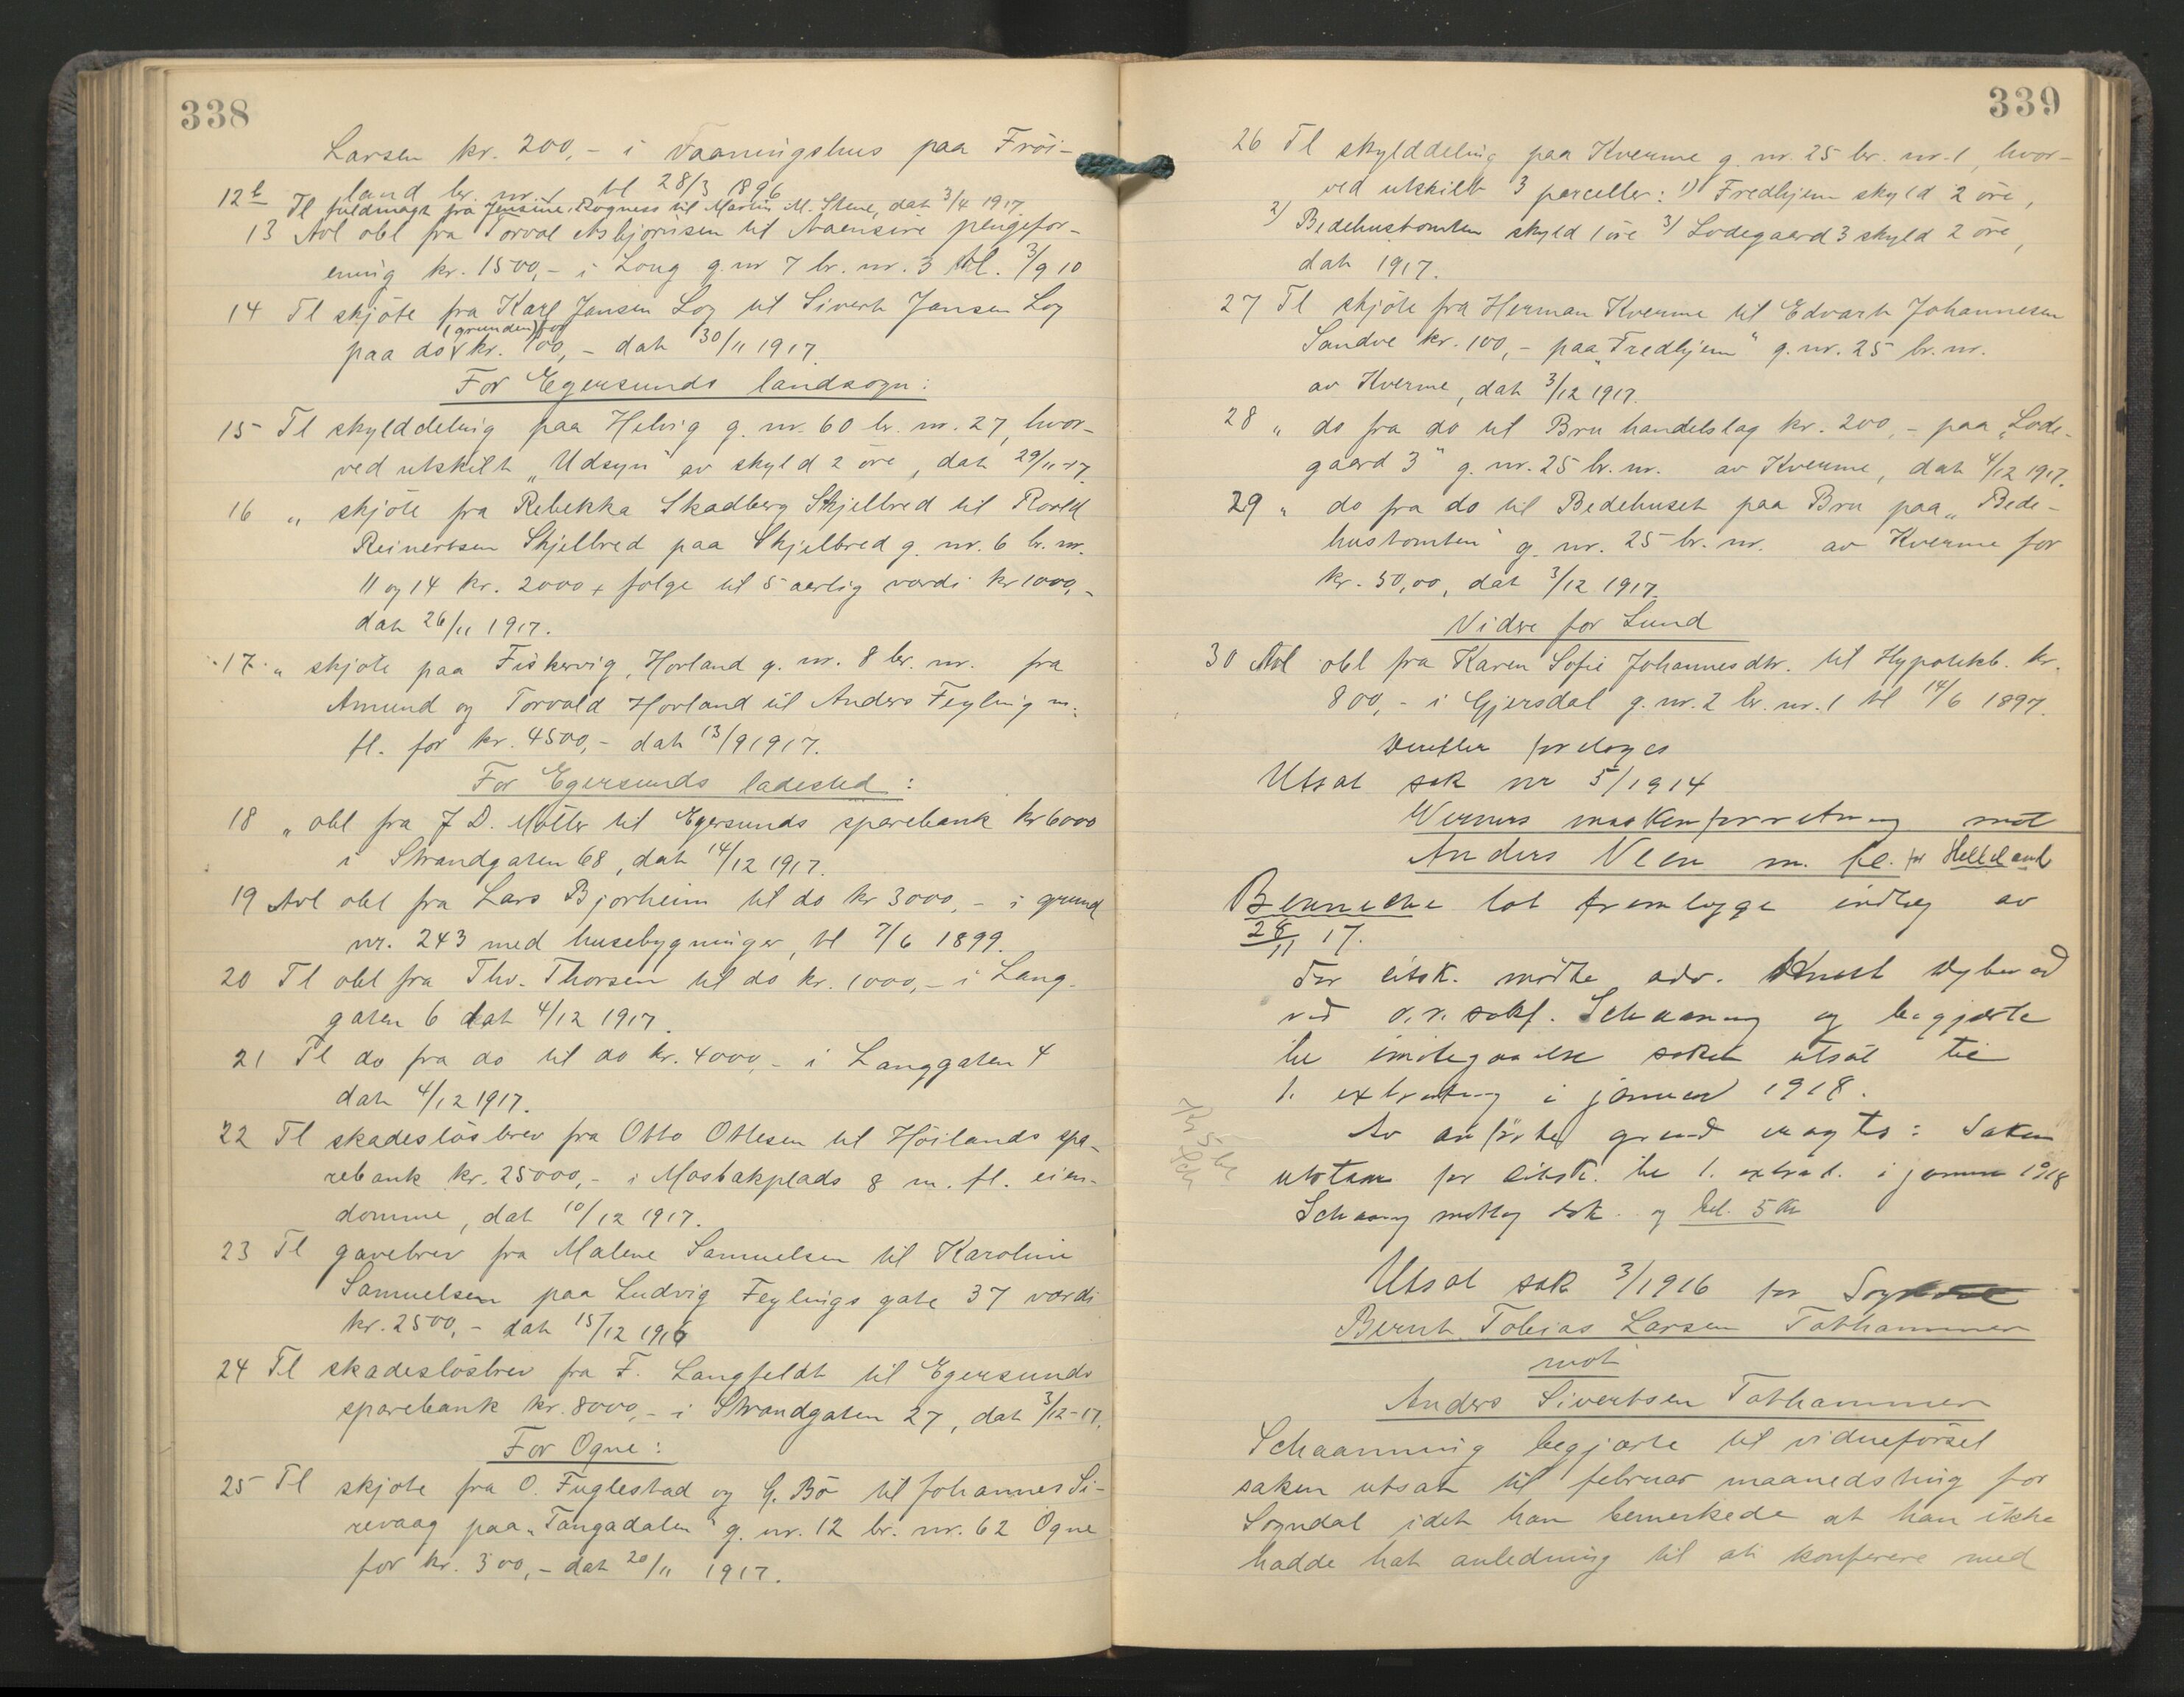 338
Larsen kr. 200,- i Vaaningshus paa Fröi-
land br. nr. 1 tl 28/3 1896
12b Tl fuldmagt fra Jensine Rogness til Martin M. Stene, dat 3/4 1917.
13 Avl obl fra Torval Asbjörnsen til pengefor-
ening kr. 1500,- i Long g. nr 7 br. nr. 3 tl. 3/9 10
14 Tl skjöte fra Karl Jansen Log til Sivert Jansen Log
(grunden) for
paa do kr. 100,- dat 30/11 1917.
For Egersunds landsogn:
15 Tl skylddeling paa Helvig g. nr. 60 br. nr. 27, hvor-
ved utskilt „Udsyn" av skyld 2 öre, dat 29/11-17.
16 „ skjöte fra Rebekka Skadberg Skjelbred til Roald
Reinertsen Skjelbred paa Skjelbred g. nr. 6 br. nr.
11 og 14 kr. 2000 + folge til 5 aarlig værdi kr 1000,-
dat 26/11 1917.
17 „ skjöte paa Fiskervig, Hovland g. nr. 8 br. nr. fra
Amund og Torvald Hovland til Anders Feyling m.
fl. for kr. 4500,- dat 13/9 1917.
For Egersunds ladested:
18 „ obl fra J D. Möller til Egersunds sparebank kr 6000
i Strandgaten 68, dat 14/12 1917.
19 Avl obl fra Lars Bjorheim til do kr 3000,- i grund
nr. 243 med husebygninger, tl 7/6 1899.
20 Tl obl fra Thv. Thorsen til do kr. 1000,- i Lang-
gaten 6 dat 4/12 1917.
21 Tl do fra do til do kr. 4000,- i Langgaten 4
dat 4/12 1917.
22 Tl skadeslösbrev fra Otto Ottesen til Höilands spa-
rebank kr. 25000,- i Mosbakplads 8 m. fl. eien-
domme, dat 10/12 1917.
23 Tl gavebrev fra Malene Samuelsen til Karoline
Samuelsen paa Ludvig Feylings gate 37 værdi
kr. 2500,- dat 15/12 1916
24 Tl skadeslösbrev fra F. Langfeldt til Egersunds
sparebank kr. 8000,- i Strandgaten 27, dat 3/12-17.
For Ogne:
25 Tl skjöte fra O. Fuglestad og G. Bö til Johannes Si-
revaag paa „Tangadalen" g. nr. 12 br. nr. 62 Ogne
for kr. 300,- dat 20/11 1917.
339
26 Tl skylddeling paa Kverme g. nr. 25 br. nr. 1, hvor-
ved utskilt 3 parceller: 1) Fredhjem skyld 2 öre,
2) Bedehustomten skyld 1 öre 3) Lodegaard 3 skyld 2 öre,
dat 1917.
27 Tl skjöte fra Herman Kverme til Edvart Johannesen
Sandve kr. 100,- paa „Fredhjem" g. nr. 25 br. nr.
av Kverme, dat 3/12 1917.
28 „ do fra do til Bru handelslag kr. 200,- paa „Lode-
gaard 3" g. nr. 25 br. nr. av Kverme, dat 4/12 1917.
29 „ do fra do til Bedehuset paa Bru paa „Bede-
hustomten" g. nr. 25 br. nr. av Kverme for
kr. 50,00, dat 3/12 1917.
Vidre for Lund
30 Avl obl fra Karen Sofie Johannesdtr. til Hypotekb. kr.
800,- i Gjersdal g. nr. 2 br. nr. 1 tl 14/6 1897.
Derefter foretoges
Utsat sak nr 5/1914
Werners maskinforretning mot
Anders Veen m. fl. for Helleland
Bennecke lot fremlægge indlæg av
28/11 17.
For citsk. mödte adv. Knut
ved o.r.sakf. Schaanning og begjærte
til imötegaaelse saken utsat til
1. extrating i januar 1918.
Av anförte grund eragtes: Saken
utstaar for citsk. til 1. extrat. i januar 1918
Schaanng mottog dok. og bet. 5 kr
Utsat sak 3/1916 for
Bernt Tobias Larsen Tothammer
mot
Anders Sivertsen Tothammer
Schaanning begjærte til vidneförsel
saken utsat til februar maanedsting for
Sogndal idet han bemerkede at han ikke
hadde hat anledning til at konferere med